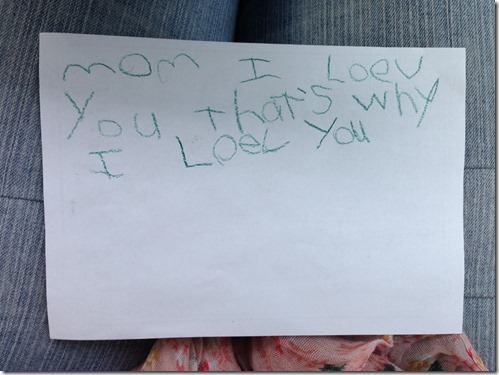 mom I Loev
You that's why
I LoeL You